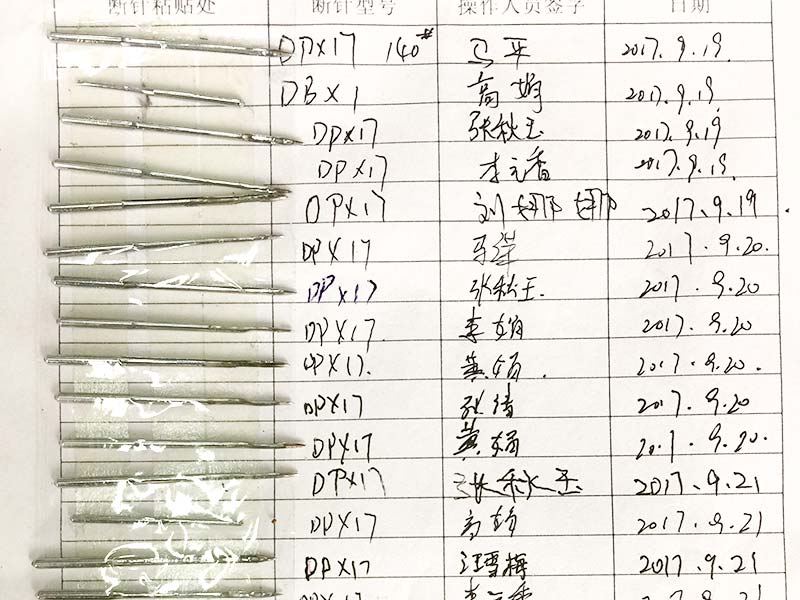 断针粘贴处 断针型号 操作人员签字 日期
DPX17 140# 马平 2017.9.19.
DBX1 高娟 2017.9.19.
DPX17 张秋玉 2017.9.19
DPX17 李元香 2017.9.19.
DPX17 刘娜娜 2017.9.19
DPX17 2017.9.20.
DPX17 张秋玉. 2017.9.20
DPX17. 李娟 2017.9.20
DPX17. 黄娟. 2017.9.20.
DPX17 张倩 2017.9.20
DPX17 黄娟 2017.9.20.
DPX17 张秋玉 2017.9.21
DPX17 高娟 2017.9.21
DPX17 汪雪梅 2017.9.21